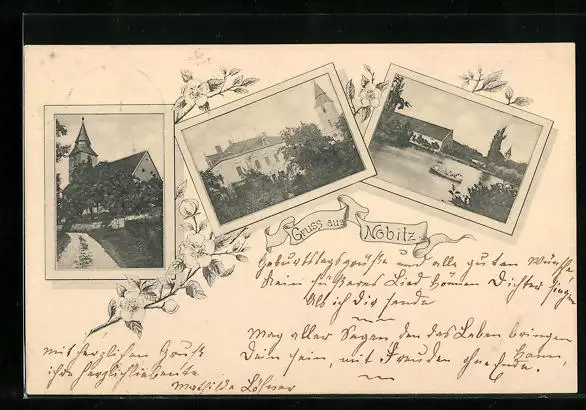 Gruss aus Nobitz
Geburtstagsgrüße und alle guten Wünsche
Kein süßeres Lied können Dichter singen
Als ich dir sende
Mag aller Segen den das Leben bringen kann,
Dein sein, mit Freuden ohne Ende.
mit herzlichen Gruß
ihre herzlichliebente
Mathilde Löhner